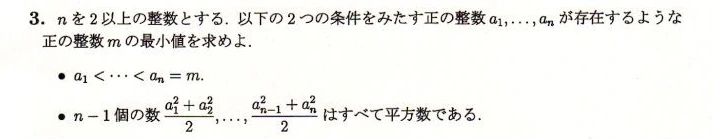 3. n を 2 以上の整数とする. 以下の 2 つの条件をみたす正の整数 a₁, . . . , aₙ が存在するような
正の整数 m の最小値を求めよ.
• a₁ < · · · < aₙ = m.
• n − 1 個の数 (a₁² + a₂²)/2, . . . , (aₙ₋₁² + aₙ²)/2 はすべて平方数である.